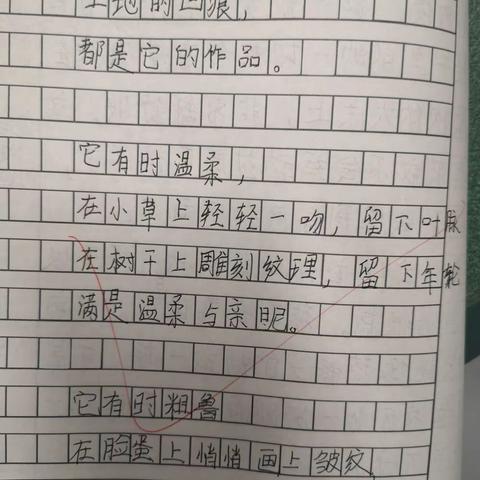 土地的凹痕，
都是它的作品。
它有时温柔，
在小草上轻轻一吻，留下叶脉
在树干上雕刻纹理，留下年轮
满是温柔与亲昵。
它有时粗鲁
在脸蛋上悄悄画上皱纹